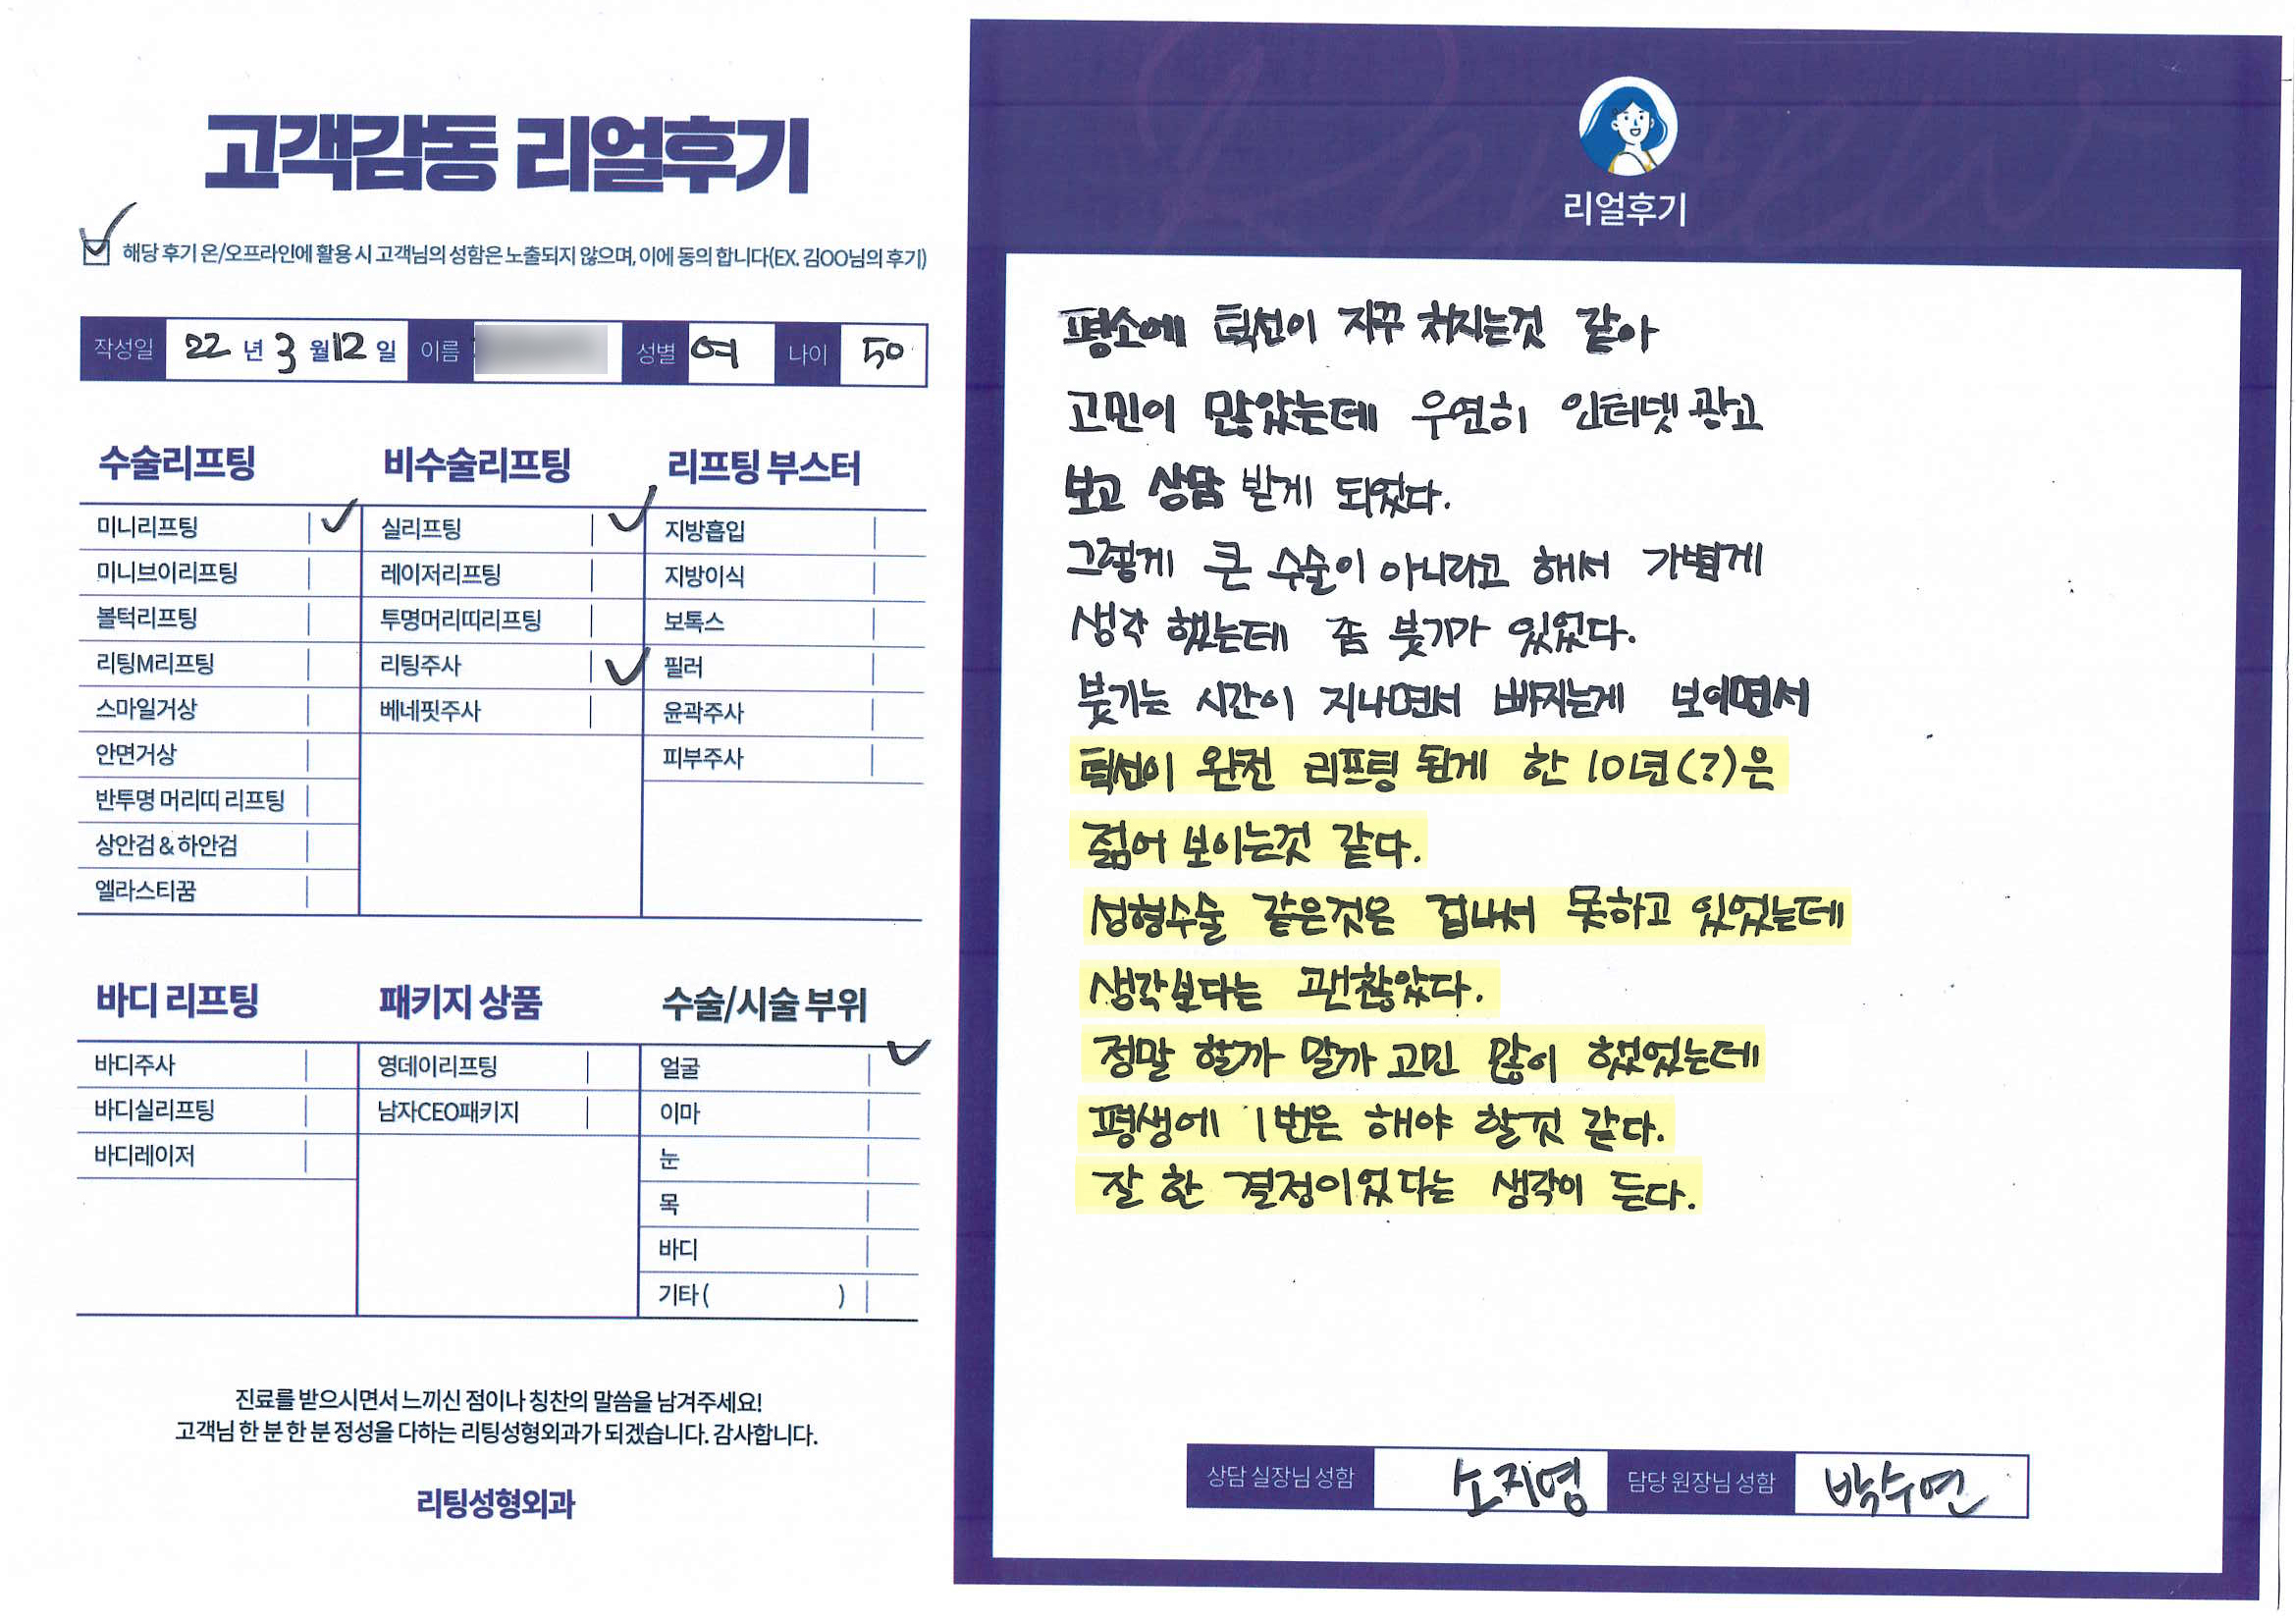 고객감동 리얼후기
해당 후기 온/오프라인에 활용 시 고객님의 성함은 노출되지 않으며, 이에 동의 합니다(EX. 김OO님의 후기)
작성일 22 년 3 월 12 일 이름 성별 여 나이 50
수술리프팅
미니리프팅
미니브이리프팅
볼턱리프팅
리팅M리프팅
스마일거상
안면거상
반투명 머리띠 리프팅
상안검 & 하안검
엘라스티꿈
비수술리프팅
실리프팅
레이저리프팅
투명머리띠리프팅
리팅주사
베네핏주사
리프팅 부스터
지방흡입
지방이식
보톡스
필러
윤곽주사
피부주사
바디 리프팅
바디주사
바디실리프팅
바디레이저
패키지 상품
영데이리프팅
남자CEO패키지
수술/시술 부위
얼굴
이마
눈
목
바디
기타 ( )
진료를 받으시면서 느끼신 점이나 칭찬의 말씀을 남겨주세요!
고객님 한 분 한 분 정성을 다하는 리팅성형외과가 되겠습니다. 감사합니다.
리팅성형외과
리얼후기
평소에 턱선이 자꾸 처지는것 같아
고민이 많았는데 우연히 인터넷 광고
보고 상담 받게 되었다.
그렇게 큰 수술이 아니라고 해서 가볍게
생각 했는데 좀 붓기가 있었다.
붓기는 시간이 지나면서 빠지는게 보이면서
턱선이 완전 리프팅 된게 한 10년(?)은
젊어 보이는것 같다.
성형수술 같은것은 겁나서 못하고 있었는데
생각보다는 괜찮았다.
정말 할까 말까 고민 많이 했었는데
평생에 1번은 해야 할것 같다.
잘 한 결정이었다는 생각이 든다.
상담 실장님 성함 소지영 담당 원장님 성함 박수연